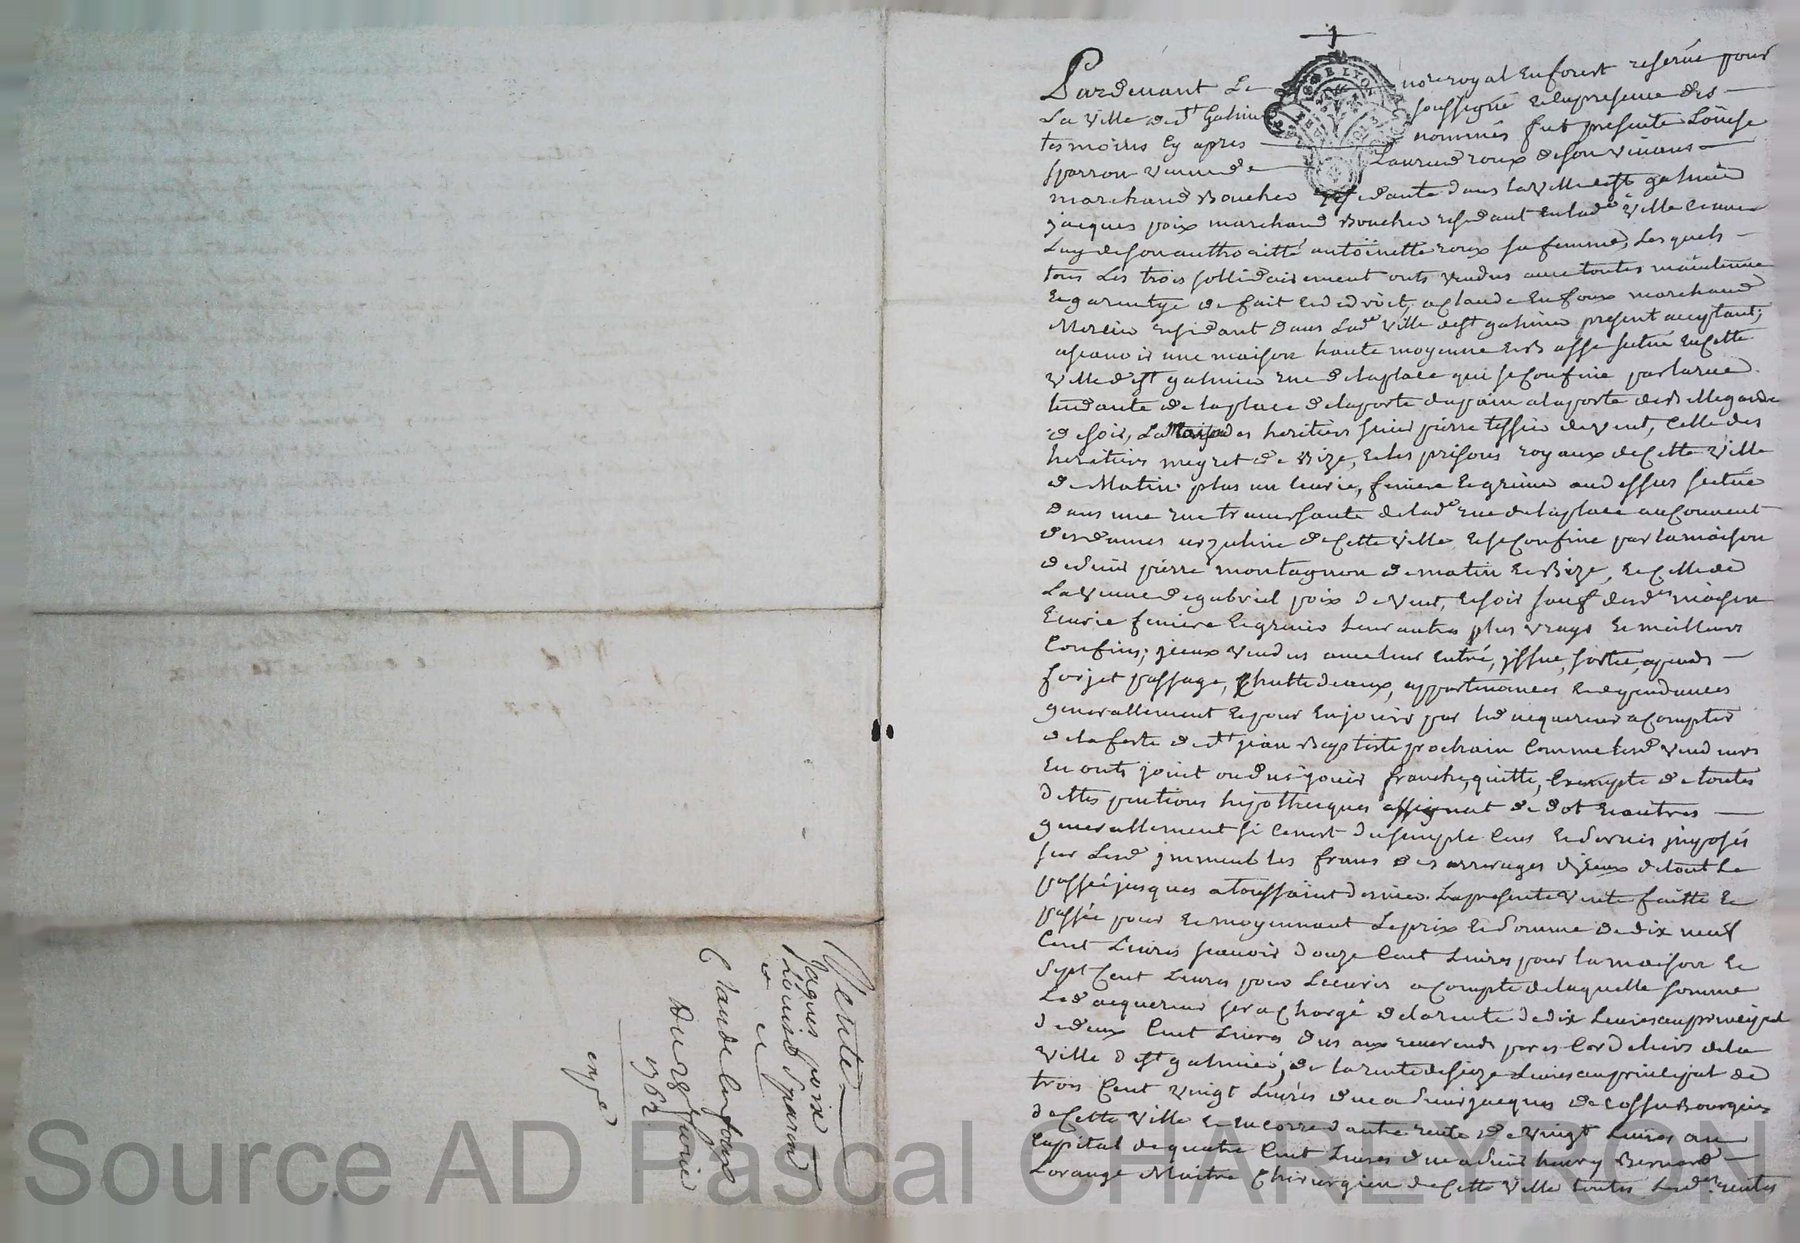 Vente
Jaques poix
Louise Sparron
et
Claude Enfoux
Du 28 Janvier
1762
Pardevant Le no.re royal En forest reservé pour
La Ville de St Galmier soussigné et en presence des
tesmoins Cy apres nommés fut presente Loüise
sparron veuve de Laurend roux de son vivant
marchand Boucher residante dans la Ville de st galmier
jacques poix marchand Boucher residant en lad.e Ville et avec
Luy de son authoritté antoinette roux sa femme, Lesquels
tous Les trois sollidairement onts vendus avec toutes maintenue
Et garentye de fait et de droit, a claude Enfoux marchand
Mercier residant dans Lad.e Ville de st galmier present acceptant;
asçavoir une maison haute moyenne et Basse scitué en Cette
Ville de st galmier rue de la place qui se Confine par la rue
tendante de la place de la porte dupain a la porte de Bellegarde
de soir, La Maison des heritiers sieur pierre tissier de vent, Celle des
heritiers megret de Bize, et les prisons royaux de Cette Ville
de Matin. plus un Ecurie, feniere et grenier au dessus scitué
dans une rue traversante de lad.e rue de la place au Couvent
des dames urzuline de Cette Ville et se Confine par la maison
de sieur pierre montagnon de matin et Bize, et Celle de
La veuve de gabriel poix de vent, et soir sauf desd.es maison
Ecurie feniere et grenier leur autres plus vrays et meilleurs
Confins; jceux vendus avec leur Entré, yssue, sortie, apends
forjet passage, Chutte deaux, appartenances et dependances
generallement et pour En jouir par led acquereur a Compter
de la feste de st jean Baptiste prochain Comme lesd Vendeurs
En onts joüit ou dus joüir franche, quitte, Exempte de toutes
dettes pentions hypotheques assignat de dot et autres
generallement si Ce n'est du simple Cens et Servis jmposés
sur Lesd jmmeubles francs des arrerages d'jceux de tout Le
passé jusques a toussaint dernier. La presente Vente faitte Et
passée pour et moyennant Le prix et Somme de dix neuf
Cent Livres sçavoir douze Cent Livres pour la maison Et
Sept Cent Livres pour L'ecurie a Compte de laquelle somme
Led acquereur sera Chargé de la rente de dix Livres au principal
de deux Cent Livres dus aux reverends peres Cordeliers de la
Ville de st galmier; de la rente de seize Livres au principal de
trois Cent vingt Livres due a sieur jacques de Cossu Bourgeois
de Cette Ville et encorre d'autre rente de Vingt Livres au
Capital de quatre Cent Livres due a sieur henry Bernard
Lorange Maitre Chirurgien de Cette Ville toutes Lesd.es rentes
Source AD Pascal CHAREYRON